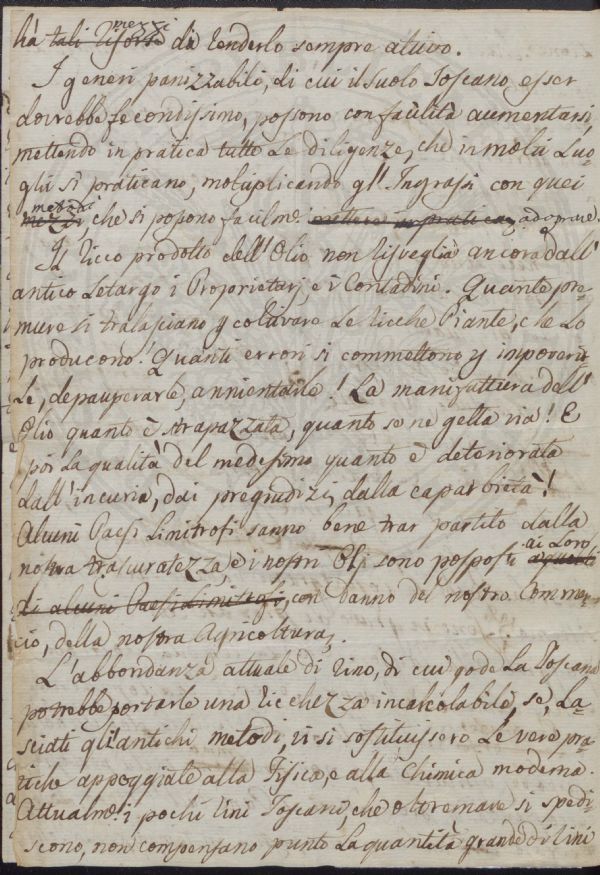 mezzi
hà tali risorse di renderlo sempre attivo.
I generi panizzabili, di cui il suolo Toscano esser
dovrebbe fecondissimo, possono con facilità aumentarsi,
mettendo in pratica tutte Le diligenze, che in molti Luo-
ghi si praticano, moltiplicando gl' Ingrassi con quei
metodi
mezzi, che si possono facilme. mettere in pratica, adoprare.
Il ricco prodotto dell' Olio non risveglia ancora dall'
antico Letargo i Proprietarj, e i Contadini. Quante pre-
mure si tralasciano p coltivare Le ricche Piante, che Lo
producono! Quanti errori si commettono p inpoverir
Le, depauperarle, annientarle! La manifattura dell'
Olio quanto è strapazzata, quanto se ne getta via! E
poi La qualità del medesimo quanto è deteriorata
dall' incuria, dai pregiudizi, dalla caparbietà!
Alcuni Paesi Limitrofi sanno bene trar partito dalla
ai Loro,
nostra trascuratezza e i nostri Olj sono posposti a quelli
di alcuni Paesi Limitrofi, con danno del nostro Commer-
cio, della nostra Agricoltura.
L'abbondanza attuale di vino, di cui gode La Toscana
potrebbe portarle una ricchezza incalcolabile, se, La-
sciati gli antichi metodi, vi si sostituissero Le vere pra-
tiche appoggiate alla Fisica, e alla Chimica moderna.
Attualme. i pochi vini Toscani, che oltremare si spedi-
scono, non compensano punto La quantità grande di vini